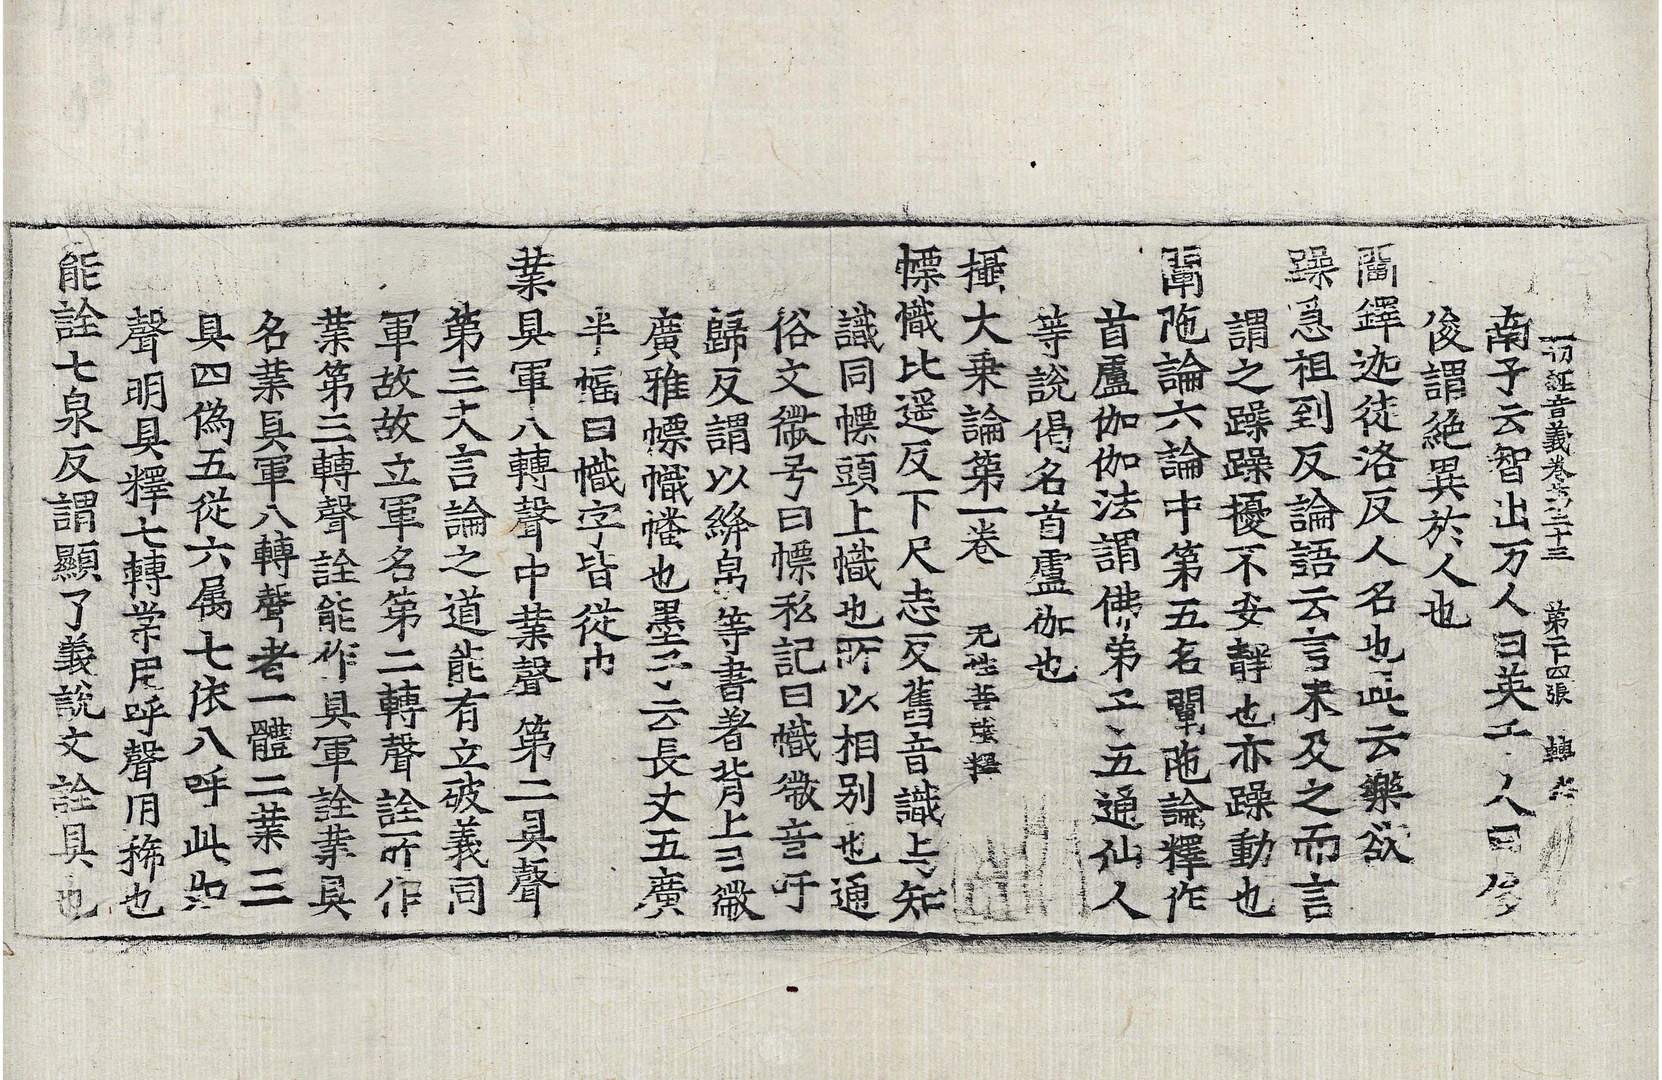 一切経音義卷第二十三 第二十四張 轉
南子云智出万人曰英千人曰俊
俊謂絶異於人也
閵鐸迦徒洛反人名也此云樂欲
躁急祖到反論語云言未及之而言
謂之躁躁擾不安靜也亦躁動也
闡陁論六論中第五名闡陁論釋作
首盧伽伽法謂佛弟子、五通仙人
等説偈名首盧伽也
攝大乗論第一卷 无性菩薩釋
幖幟比遥反下尺志反舊音識上、知
識同幖頭上幟也所以相别也通
俗文徽号曰幖私記曰幟徽音吁
歸反謂以絳帛等書著背上曰徽
廣雅幖幟幡也墨子、云長丈五廣
半幅曰幟字皆從巾
業具軍八轉聲中業聲第二具聲
第三大言論之道能有立破義同
軍故故立軍名第二轉聲詮所作
業第三轉聲詮能作具軍詮業具
名業具軍八轉聲者一體二業三
具四爲五從六属七依八呼此如
聲明具釋七轉常用呼聲用稀也
能詮七泉反謂顯了義説文詮具也